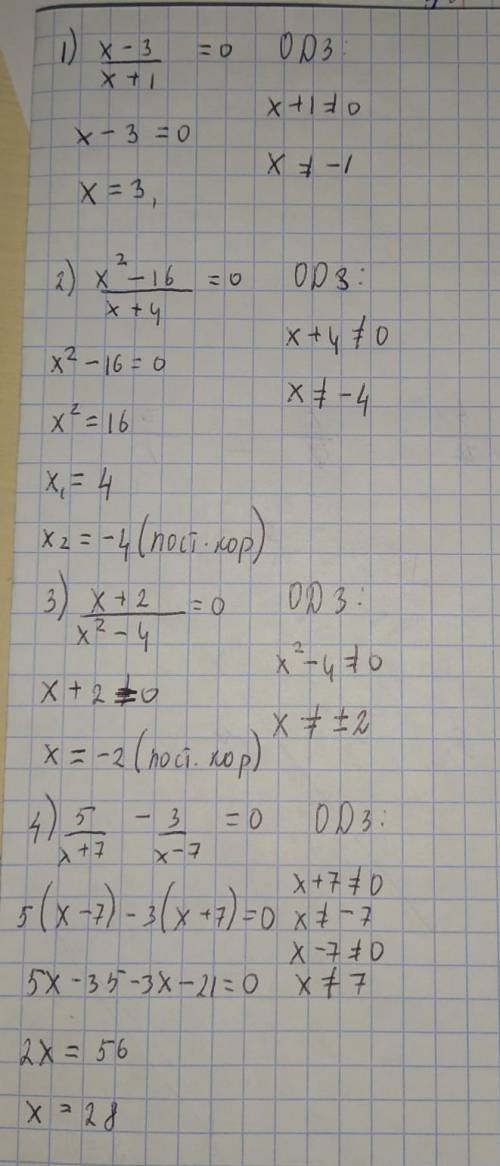 1) x-3/x+1 =0 ОДЗ:
x+1≠0
x-3=0
x≠-1
x=3,
2) x²-16/x+4 =0 ОДЗ:
x+4≠0
x²-16=0
x≠-4
x²=16
x₁=4
x₂=-4(пост.кор)
3) x+2/x²-4 =0 ОДЗ:
x²-4≠0
x+2≠0
x≠±2
x=-2(пост.кор)
4) 5/x+7 - 3/x-7 =0 ОДЗ:
x+7≠0
5(x-7)-3(x+7)=0 x≠-7
x-7≠0
5x-35-3x-21=0 x≠7
2x=56
x=28